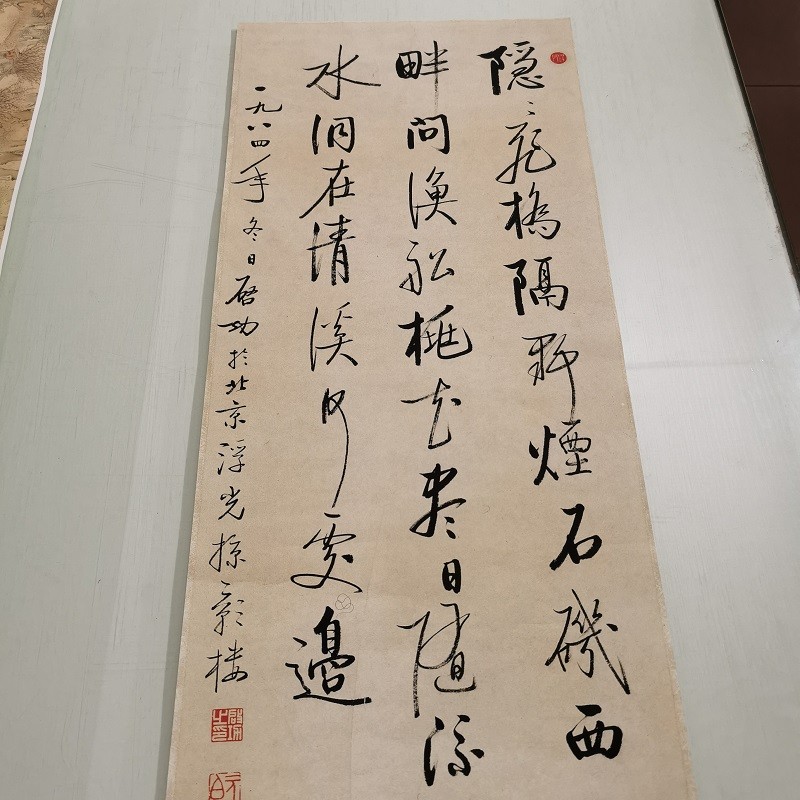 隐〻飛橋隔野煙石磯西
畔问漁船桃花盡日随流
水洞在清溪何处邉
一九八四年冬日启功於北京浮光掠影楼